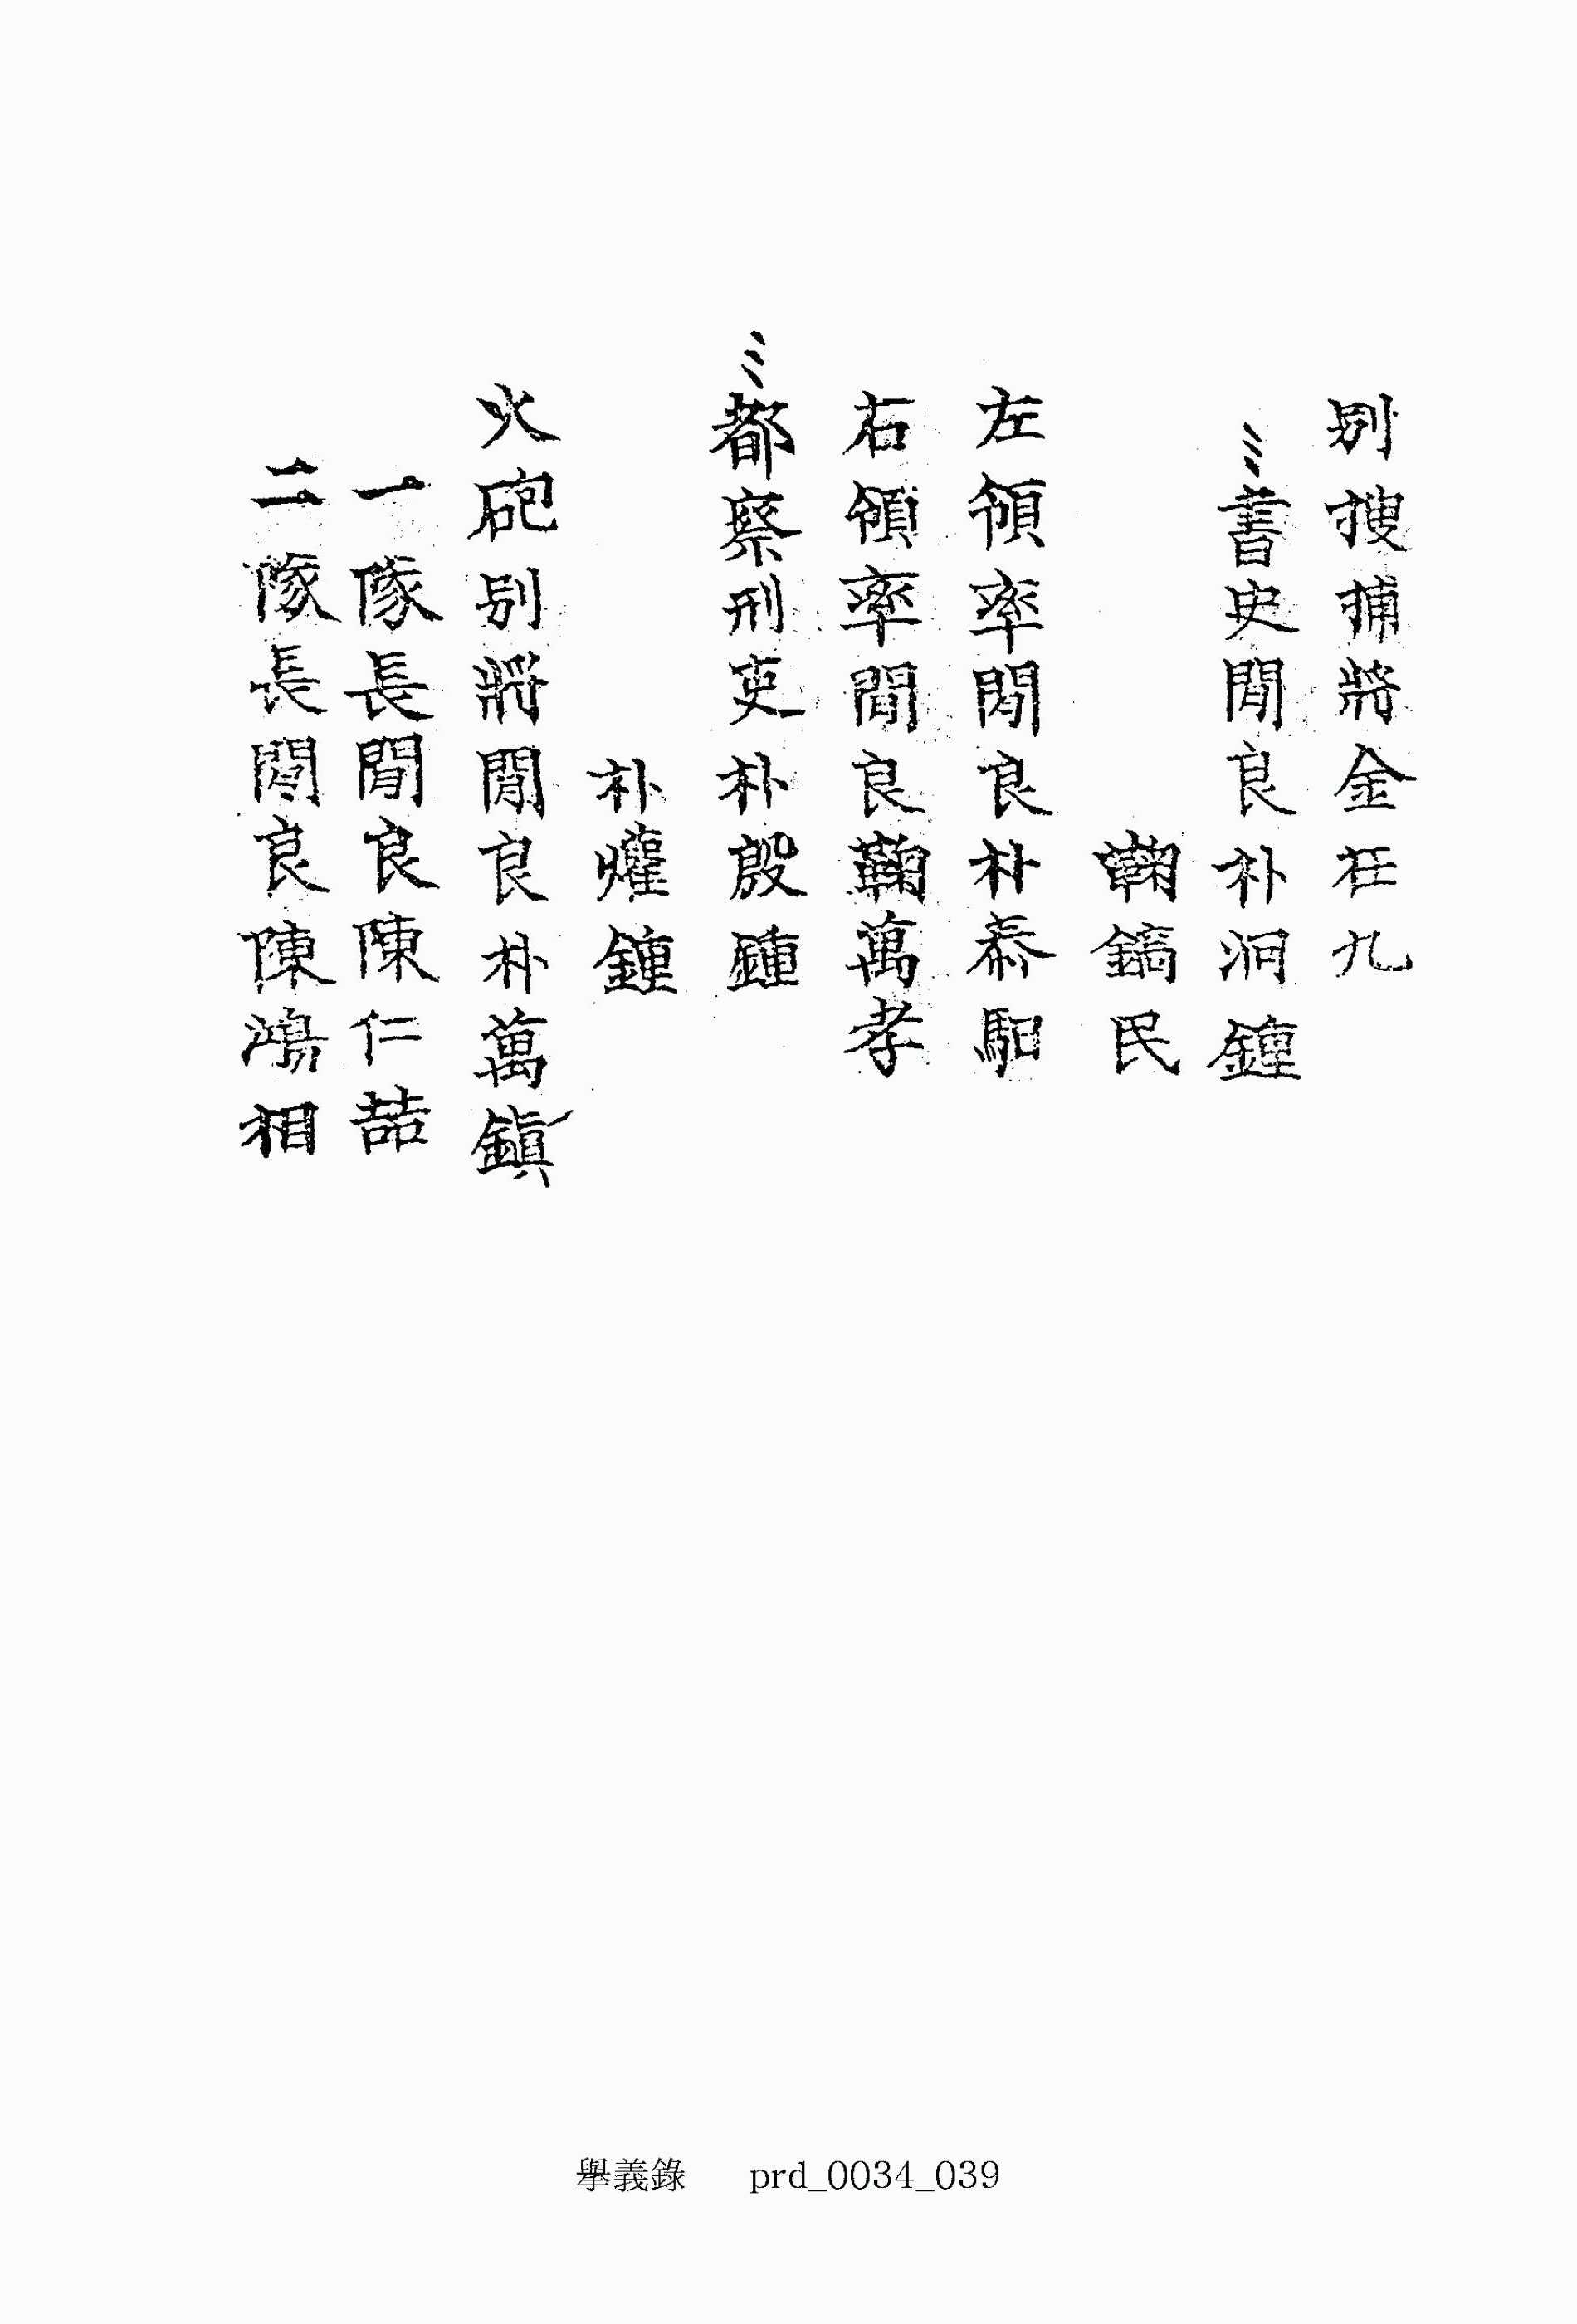 別搜捕將金在九
〻書史閒良朴洞鍾
鞠鎬民
左領率閒良朴泰馹
右領率閒良鞠萬孝
〻都察刑吏朴殷鍾
朴燿鍾
火砲別將閒良朴萬鎭
一隊長閒良陳仁喆
二隊長閒良陳鴻相
擧義錄 prd_0034_039